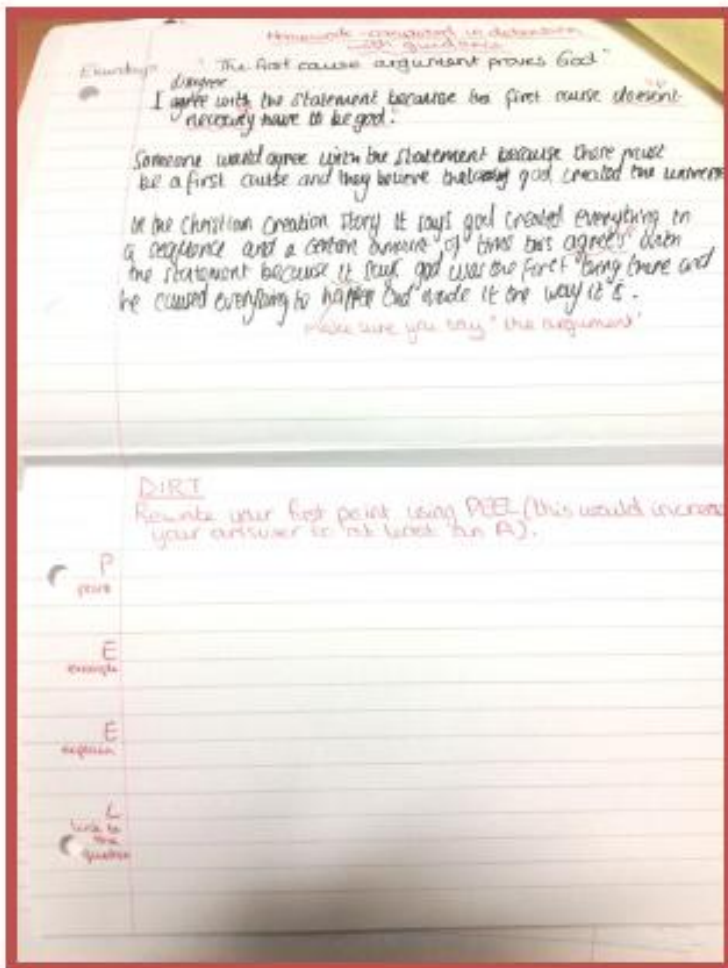 Homework - completed in detention
with guidance
"The first cause argument proves God"
disagree
I agree with the statement because the first cause doesent
necesery have to be god.
Someone would agree with the statement because there must
be a first cause and they believe that god created the universe
In the Christian Creation Story it says god created everything in
a sequence and a certain amount of time this agree's with
the statement because it says god was the first thing there and
he caused everything to happen and made it the way it is.
make sure you say "the argument"
DIRT
Rewrite your first point using PEEL (this would increase
your answer to at least an A).
P
point
E
example
E
explain
L
link to
the
question